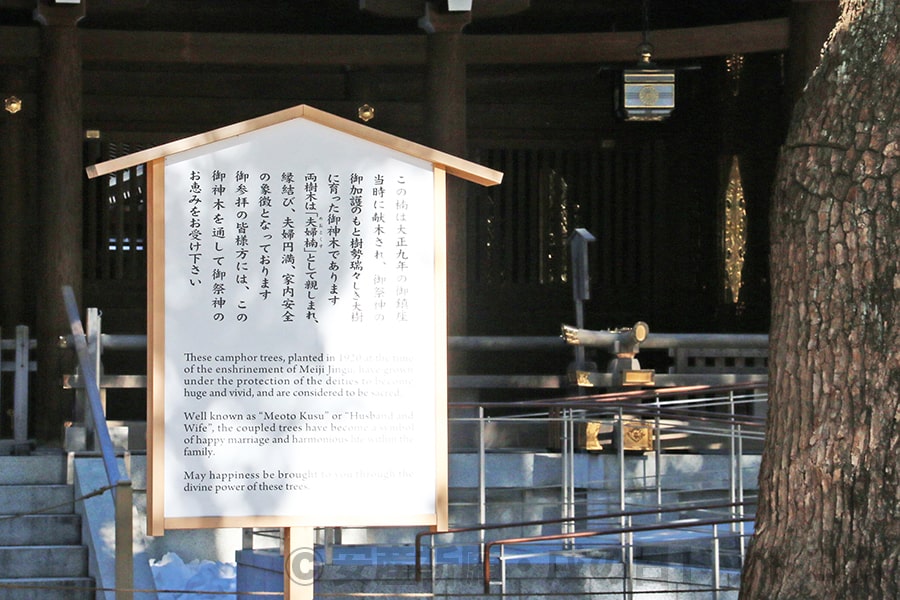 この楠は大正九年の御鎮座
当時に献木され、御祭神の
御加護のもと樹勢瑞々しき大樹
に育った御神木であります
両樹木は「夫婦楠」として親しまれ、
縁結び、夫婦円満、家内安全
の象徴となっております
御参拝の皆様方には、この
御神木を通して御祭神の
お恵みをお受け下さい
These camphor trees, planted in 1920 at the time
of the enshrinement of Meiji Jingu, have grown
under the protection of the deities to become
huge and vivid, and are considered to be sacred.
Well known as “Meoto Kusu” or “Husband and
Wife”, the coupled trees have become a symbol
of happy marriage and harmonious life within the
family.
May happiness be brought to you through the
divine power of these trees.